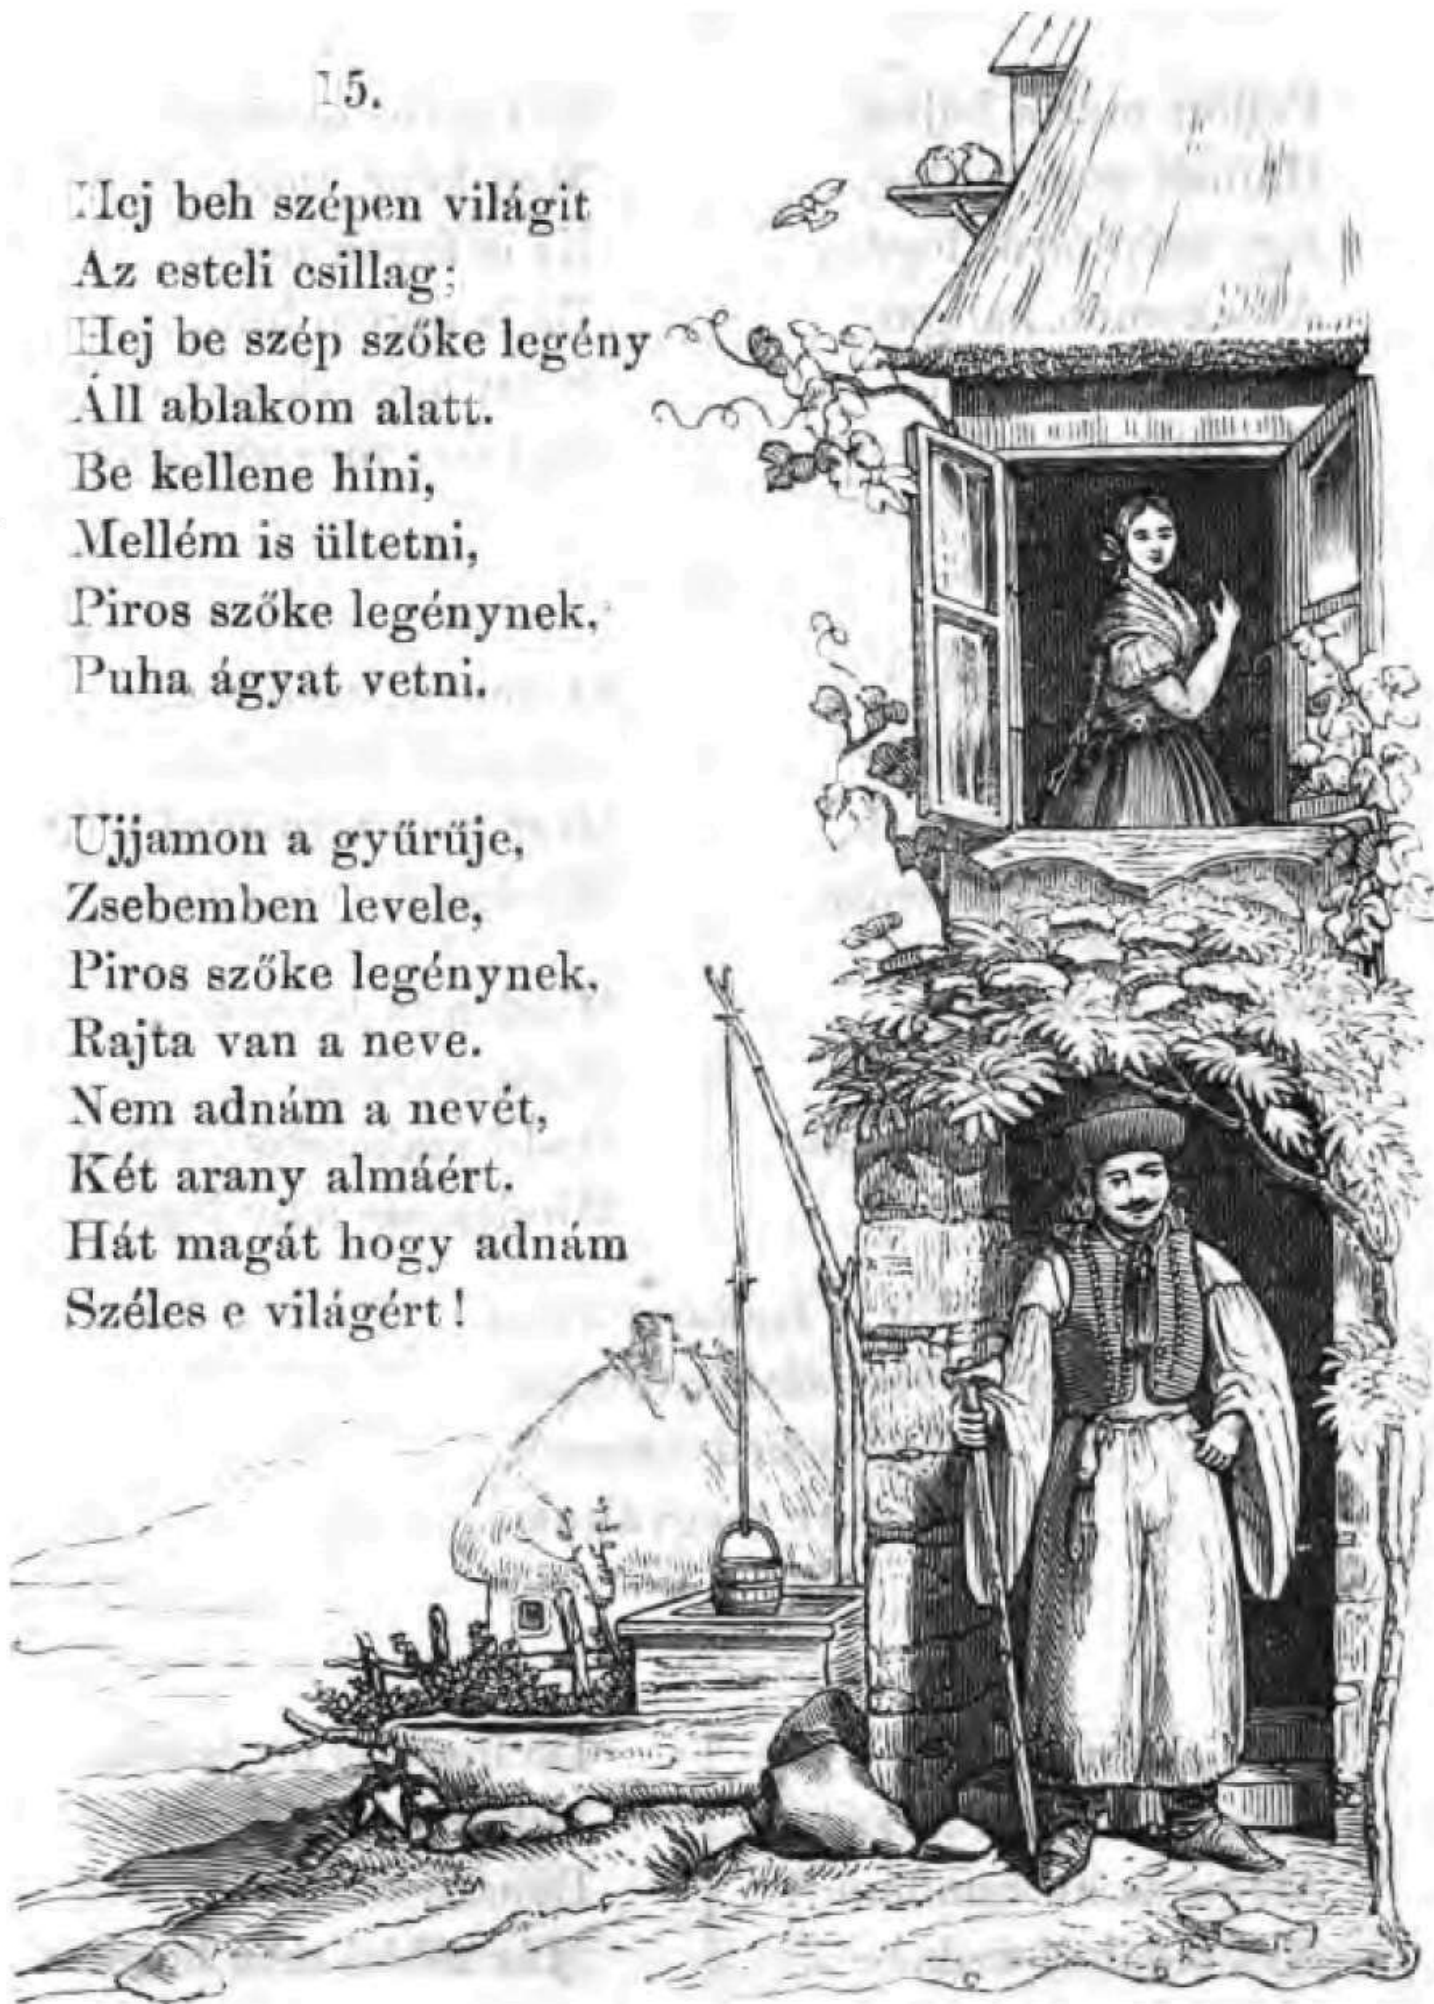 15.
Hej beh szépen világit
Az esteli csillag;
Hej be szép szőke legény
Áll ablakom alatt.
Be kellene híni,
Mellém is ültetni,
Piros szőke legénynek,
Puha ágyat vetni.
Ujjamon a gyűrűje,
Zsebemben levele,
Piros szőke legénynek,
Rajta van a neve.
Nem adnám a nevét,
Két arany almáért.
Hát magát hogy adnám
Széles e világért!